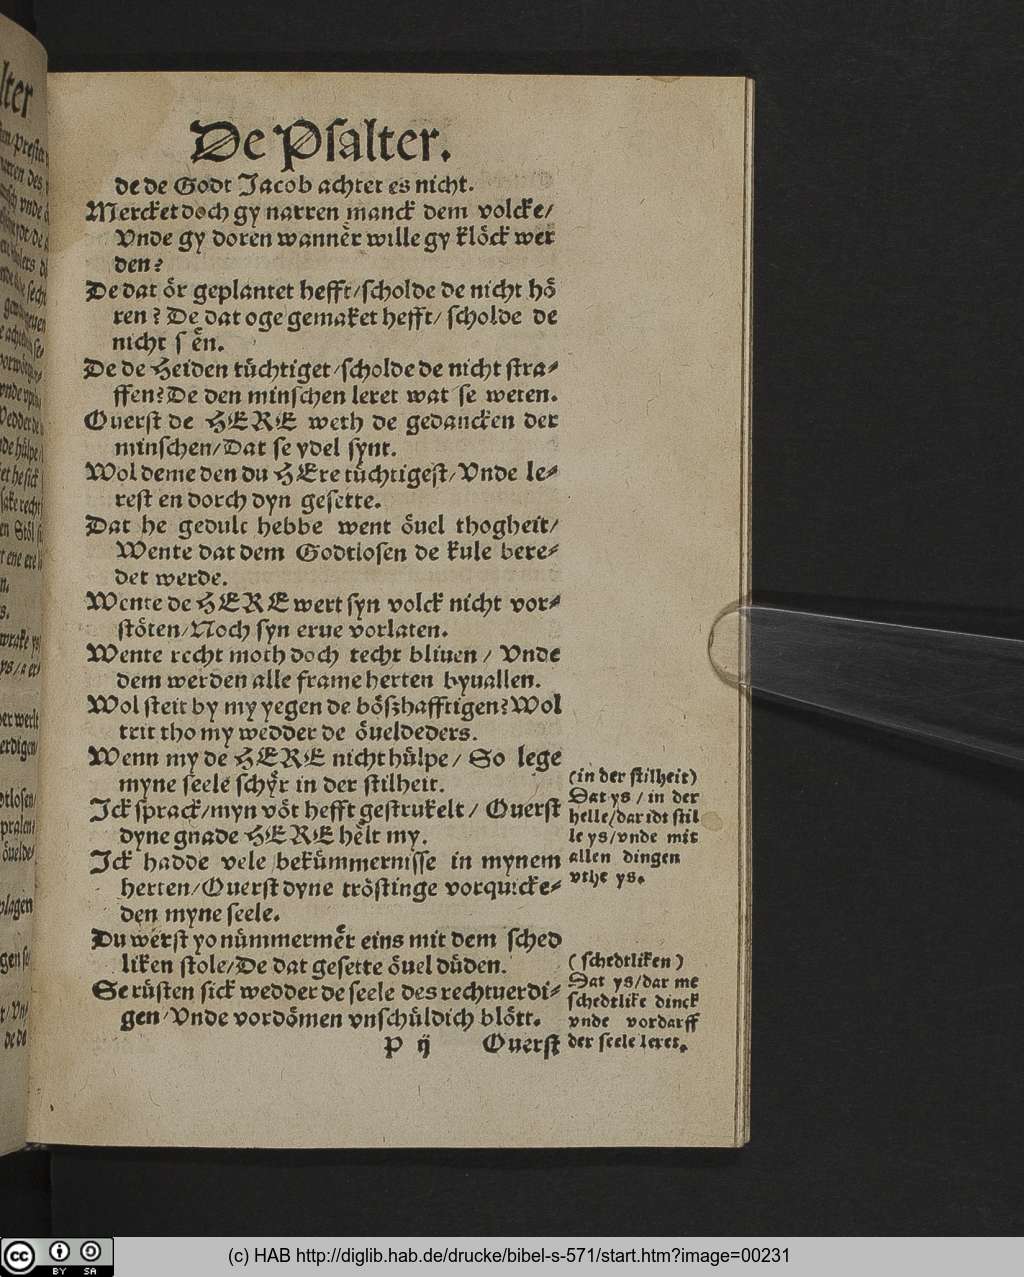 De Psalter.
de de Godt Jacob achtet es nicht.
Mercket doch gy narren manck dem volcke/
Vnde gy doren wanner wille gy klöck wer
den?
De dat ör geplantet hefft/scholde de nicht hö
ren? De dat oge gemaket hefft/ scholde de
nicht sen.
De de Heiden tüchtiget/scholde de nicht stra⸗
ffen? De den minschen leret wat se weten.
Ouerst de HERE weth de gedancken der
minschen/Dat se ydel synt.
Wol deme den du HEre tüchtigest/Vnde le⸗
rest en dorch dyn gesette.
Dat he gedult hebbe went öuel thogheit/
Wente dat dem Godtlosen de kule bere⸗
det werde.
Wente de HERE wert syn volck nicht vor⸗
stöten/Noch syn erue vorlaten.
Wente recht moth doch recht bliuen / Vnde
dem werden alle frame herten byuallen.
Wol steit by my yegen de bößhafftigen? Wol
trit tho my wedder de öueldeders.
Wenn my de HERE nicht hülpe/ So lege
myne seele schyr in der stilheit.
Ick sprack/myn vöt hefft gestrukelt/ Ouerst
dyne gnade HERE helt my.
Ick hadde vele bekümmernisse in mynem
herten/Ouerst dyne tröstinge vorquicke⸗
den myne seele.
Du werst yo nümmermer eins mit dem sched
liken stole/De dat gesette öuel düden.
Se rüsten sick wedder de seele des rechtuerdi⸗
gen/Vnde vordömen vnschüldich blött.
P ij Ouerst
(in der stilheit)
Dat ys / in der
helle/dar idt stil
le ys/vnde mit
allen dingen
vthe ys.
( schedtliken )
Dat ys/dar me
schedtlike dinck
vnde vordarff
der seele leret.
(c) HAB http://diglib.hab.de/drucke/bibel-s-571/start.htm?image=00231
cc BY SA